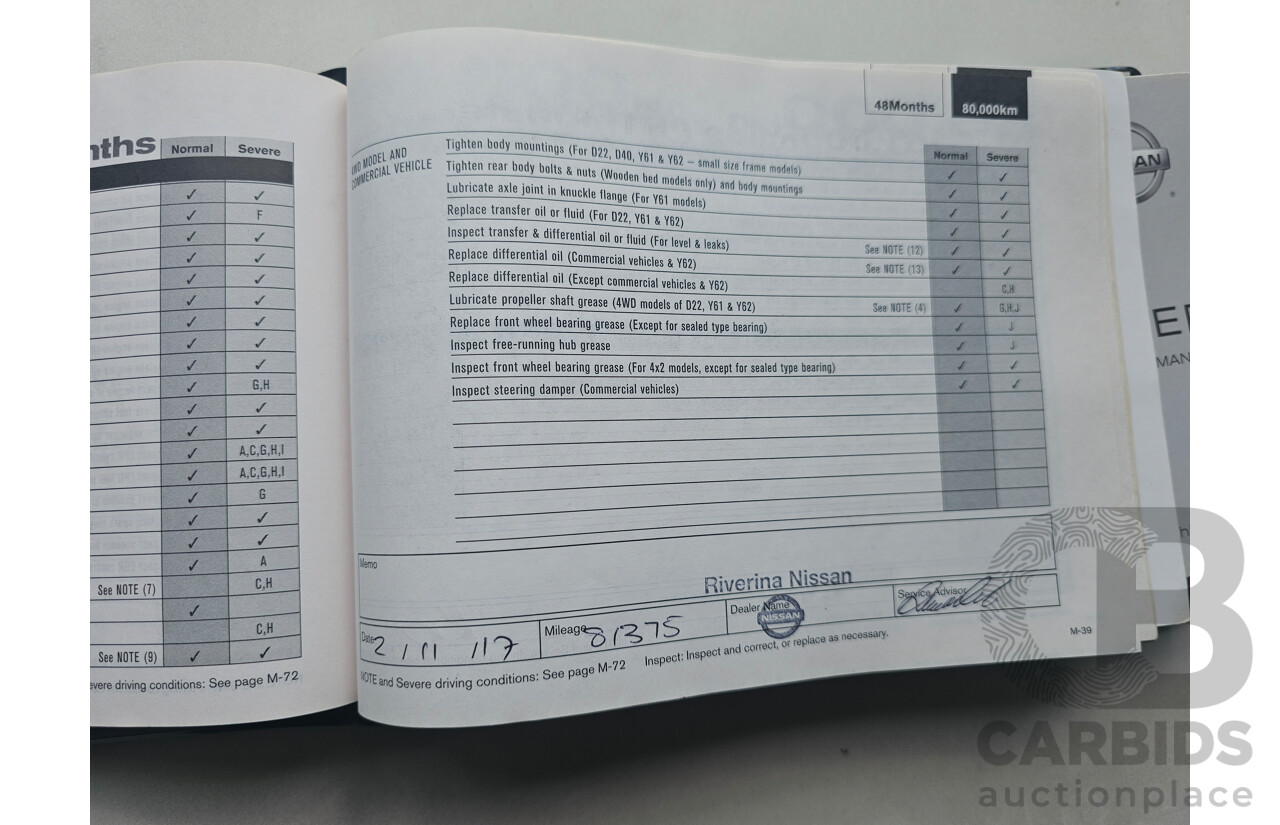 nths
Normal
Severe
F
G,H
A,C,G,H,I
A,C,G,H,I
G
A
See NOTE (7)
C,H
C,H
See NOTE (9)
evere driving conditions: See page M-72
48Months
80,000km
WD MODEL AND
COMMERCIAL VEHICLE
Normal
Severe
Tighten body mountings (For D22, D40, Y61 & Y62 – small size frame models)
Tighten rear body bolts & nuts (Wooden bed models only) and body mountings
Lubricate axle joint in knuckle flange (For Y61 models)
Replace transfer oil or fluid (For D22, Y61 & Y62)
Inspect transfer & differential oil or fluid (For level & leaks)
See NOTE (12)
Replace differential oil (Commercial vehicles & Y62)
See NOTE (13)
Replace differential oil (Except commercial vehicles & Y62)
C,H
Lubricate propeller shaft grease (4WD models of D22, Y61 & Y62)
See NOTE (4)
G,H,J
Replace front wheel bearing grease (Except for sealed type bearing)
J
Inspect free-running hub grease
J
Inspect front wheel bearing grease (For 4x2 models, except for sealed type bearing)
Inspect steering damper (Commercial vehicles)
Memo
Riverina Nissan
Date 2/11/17
Mileage 81375
Dealer Name
NISSAN
Service Advisor
NOTE and Severe driving conditions: See page M-72
Inspect: Inspect and correct, or replace as necessary.
M-39
AN
MAN
CARBIDS
auctionplace